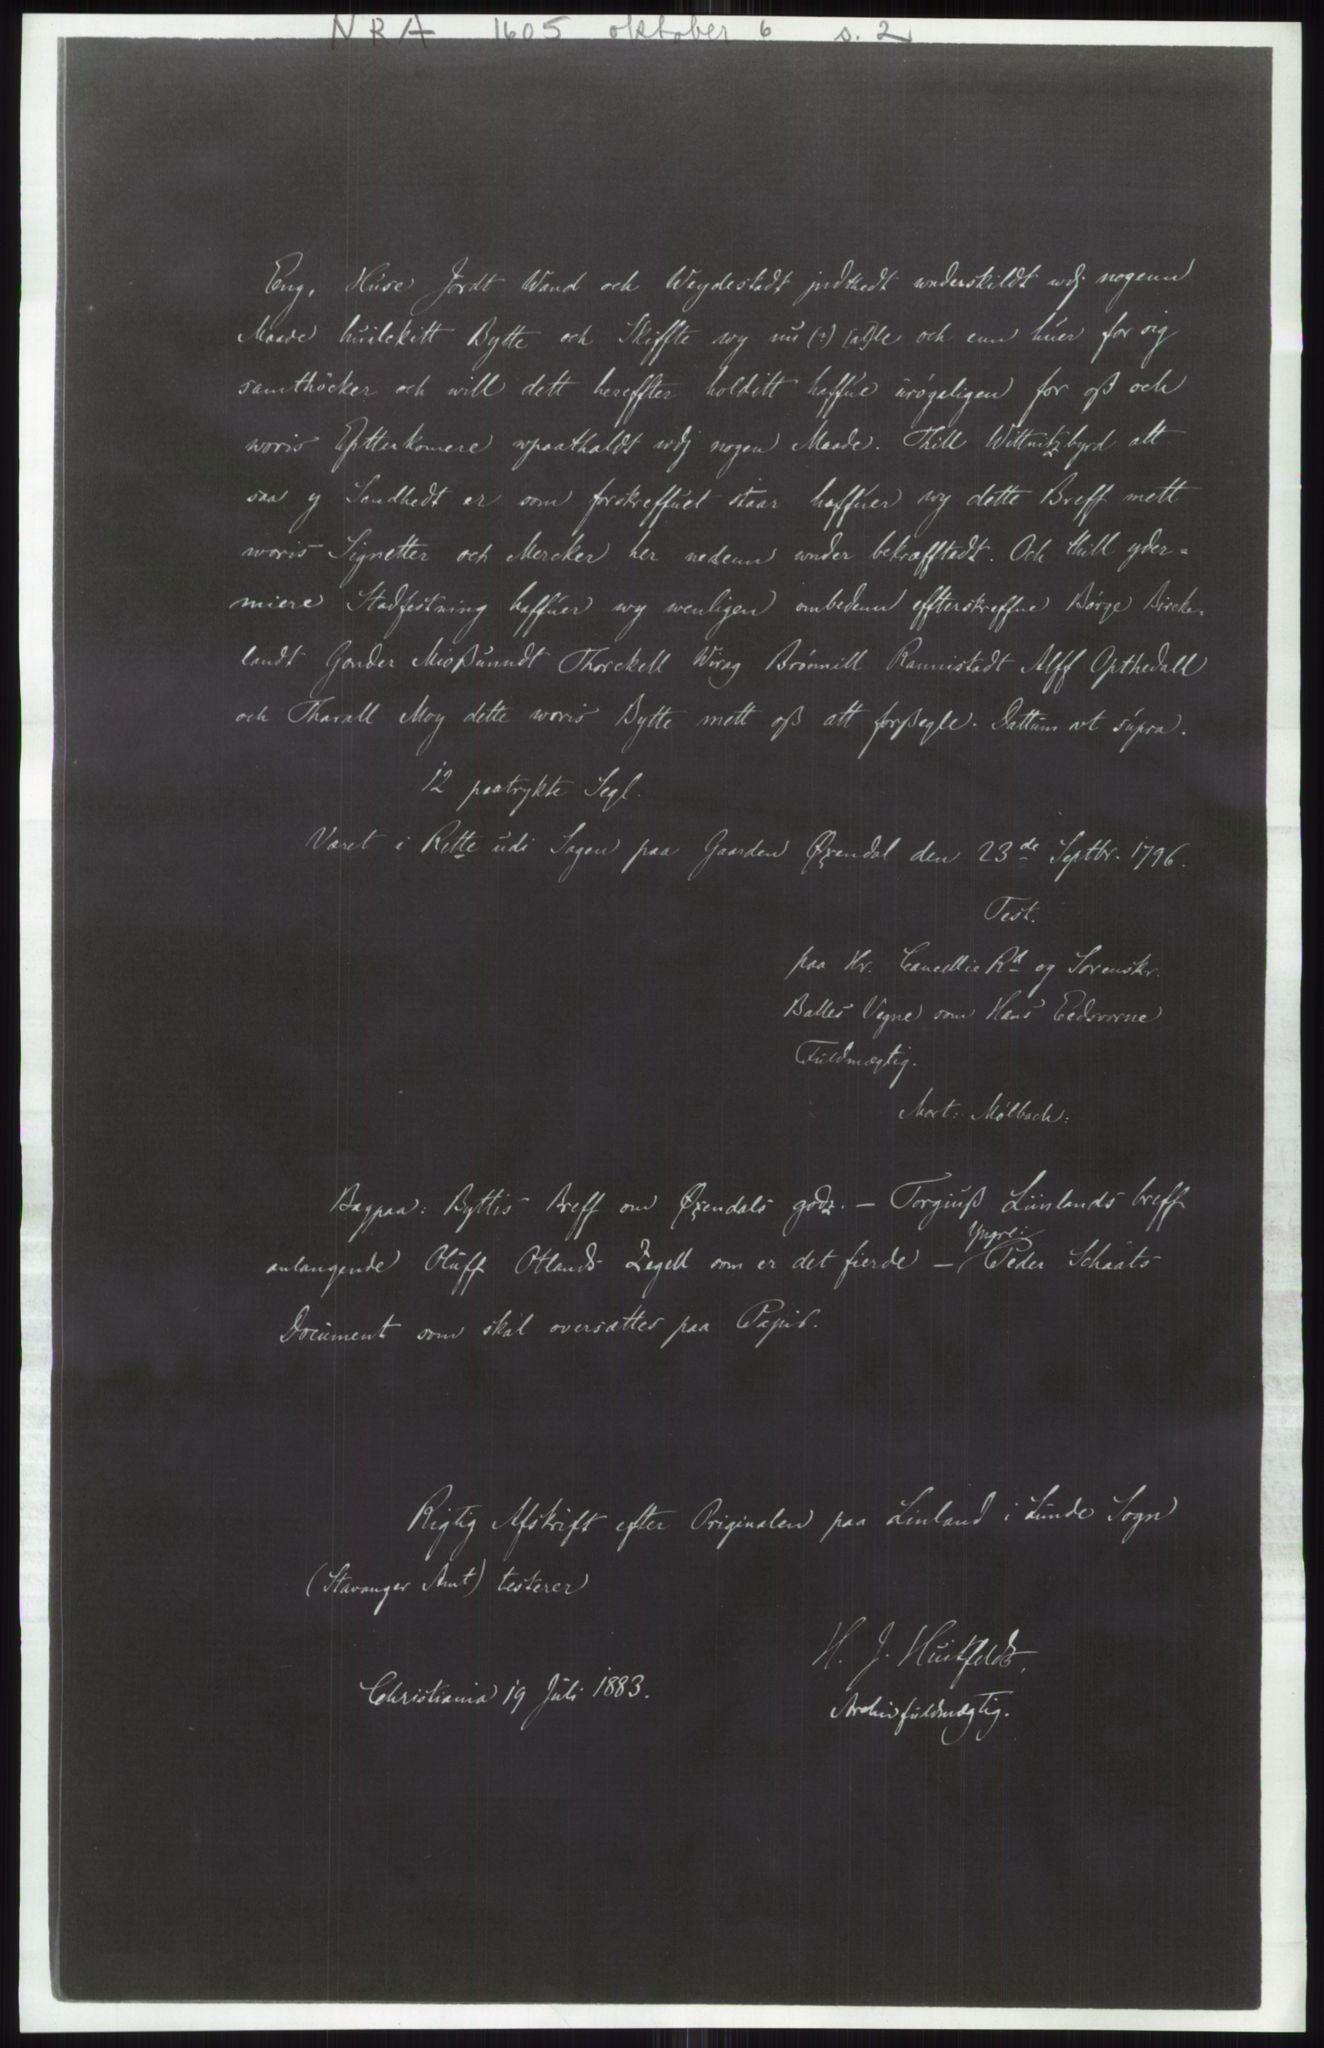 NRA 1605 oktober 6 s. 2
Eng, Huse Jordt Wand och Weydestadt jndthedt wnderskildt wdj nogenn
Maade huilckitt Bytte och Skiffte wy nu (?) [al]le och enn huer for sig
samthöcker och will dett hereffter holditt haffue urögeligen for oß och
woris Eptterkomere wpaathaldt wdj nogen Maade. Thill Wittnitzbyrd att
saa y Sandhedt er som forskreffuet staar haffuer wy dette Breff mett
woris Signetter och Mercker her nedenn wnder bekræfftedt. Och thill yder=
miere Stadfestning haffuer wy wenligen ombedenn effterskreffne Börge Bircke-
landt Gonder Mioßunndt Thorckell Wirag Brönnill Rannistadt Alff Opthedall
och Tharall Moy dette woris Bytte mett oß att forßegle. Dattum vt supra.
12 paatrykte Segl.
Været i Rette udi Sagen paa Gaarden Øxendal den 23de Septbr. 1796.
Test.
paa Hr. Cancellie Rd og Sorenskr.
Balles Vegne som Hans Eedsvorne
Fuldmægtig.
Mort: Mølbach:
Bagpaa: Byttis Breff om Øxendals godz. — Torgiuß Liinlands breff
anlangende Oluff Otlands Zegell som er det fierde — Yngre: Peder Schaats
Document som skal oversættes paa Papir.
Rigtig Afskrift efter Originalen paa Linland i Lunde Sogn
(Stavanger Amt) testerer
H. J. Huitfeldt,
Christiania 19 Juli 1883.
Archivfuldmægtig.